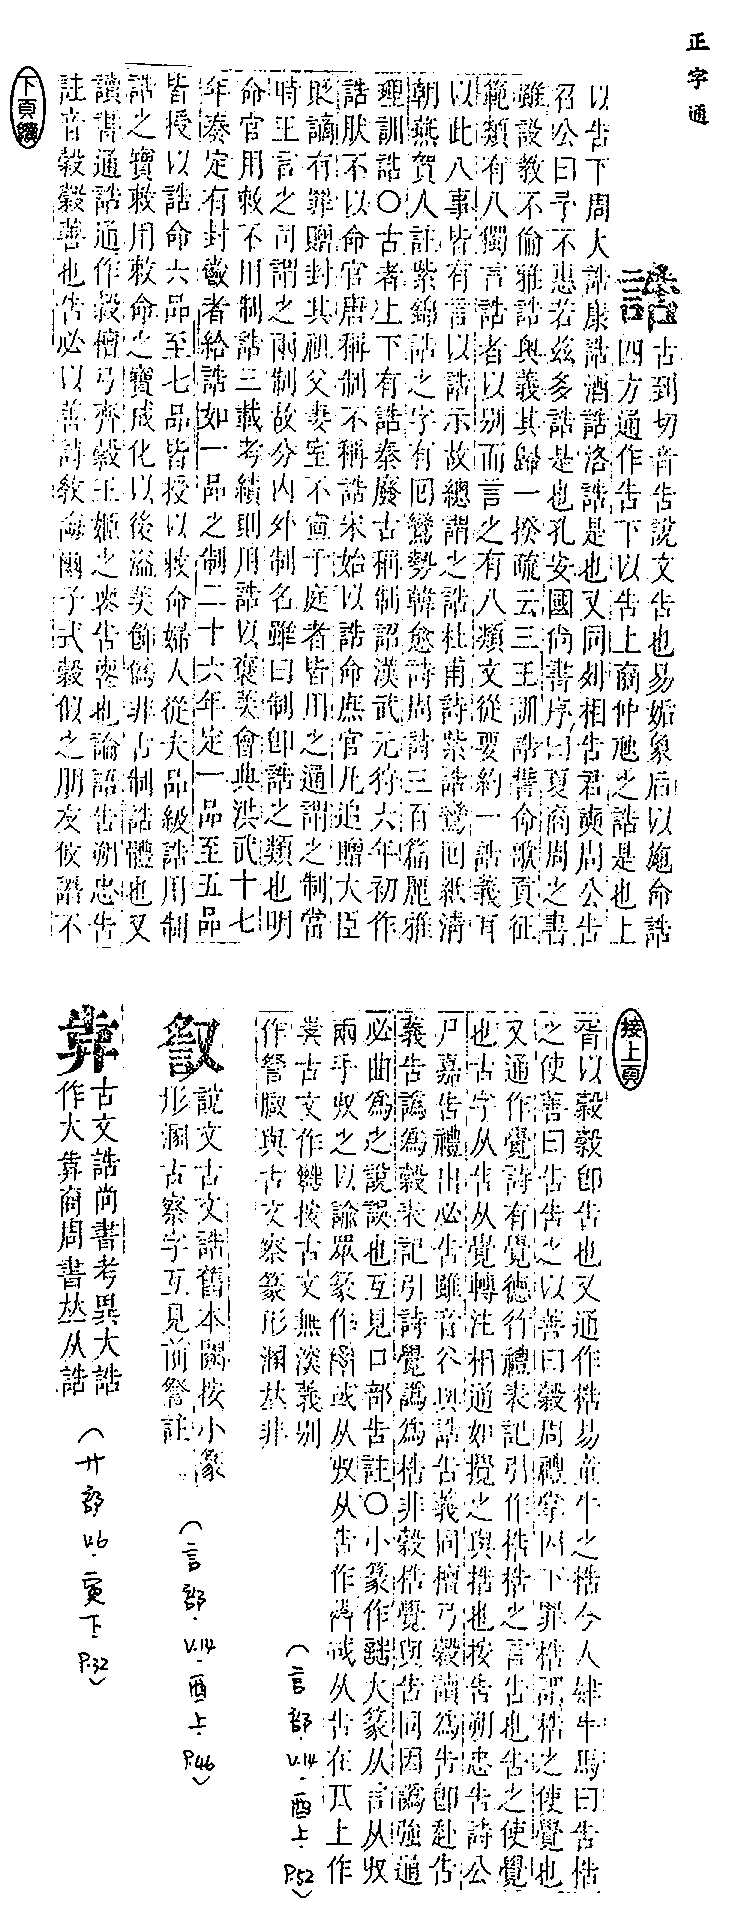 正字通
誥
古到切音告說文告也易姤象后以施命誥
四方通作告下以告上商仲虺之誥是也上
以告下周大誥康誥酒誥洛誥是也又同列相告君奭周公告
召公曰予不惠若玆多誥是也孔安國尚書序曰夏商周之書
雖設教不倫雅誥奥義其歸一揆疏云三王訓誥誓命歌貢征
範類有八獨言誥者以别而言之有八類文從要約一誥義耳
以此八事皆有言以誥示故總謂之誥杜甫詩紫誥鸞回紙清
朝燕賀人註紫錦誥之字有回鸞勢韓愈詩周詩三百篇麗雅
理訓誥○古者上下有誥秦廢古稱制詔漢武元狩六年初作
誥肰不以命官唐稱制不稱誥宋始以誥命庶官凡追贈大臣
貶謫有罪贈封其祖父妻室不宣于庭者皆用之通謂之制當
時王言之司謂之兩制故分内外制名雖曰制卽誥之類也明
命官用敕不用制誥三載考績則用誥以襃美會典洪武十七
年奏定有封爵者給誥如一品之制二十六年定一品至五品
皆授以誥命六品至七品皆授以敕命婦人從夫品級誥用制
誥之寶敕用敕命之寶成化以後溢美飾僞非古制誥體也又
讀書通誥通作穀檀弓齊穀王姬之喪告喪也論語告朔忠告
註音穀穀善也告必以善詩敎誨爾子式穀似之朋友攸譖不
下頁續
接上頁
胥以穀穀卽告也又通作梏易童牛之梏今人肂牛馬曰告梏
之使善曰告告之以善曰穀周禮掌囚下罪梏謂梏之使覺也
又通作覺詩有覺德行禮表記引作梏梏之言告也告之使覺
也古字从告从覺轉注相通如攪之與捁也按告朔忠告詩公
尸嘉告禮出必告雖音谷與誥告義同檀弓穀讀爲告卽赴告
義告譌爲穀表記引詩覺譌爲梏非穀梏覺與告同因譌強通
必曲爲之說誤也互見口部告註○小篆作誥大篆从言从収
兩手収之以諭眾篆作或从収从告作或从告在丌上作
古文作按古文無深義别
作與古文察篆形溷𠀤非
說文古文誥舊本闕按小篆
形溷古察字互見前註
(言部.V.14.酉上.P.52)
(言部.V.14.酉上.P.46)
古文誥尚書考異大誥
作大商周書𠀤从誥
(廾部V.6.寅下P.32)